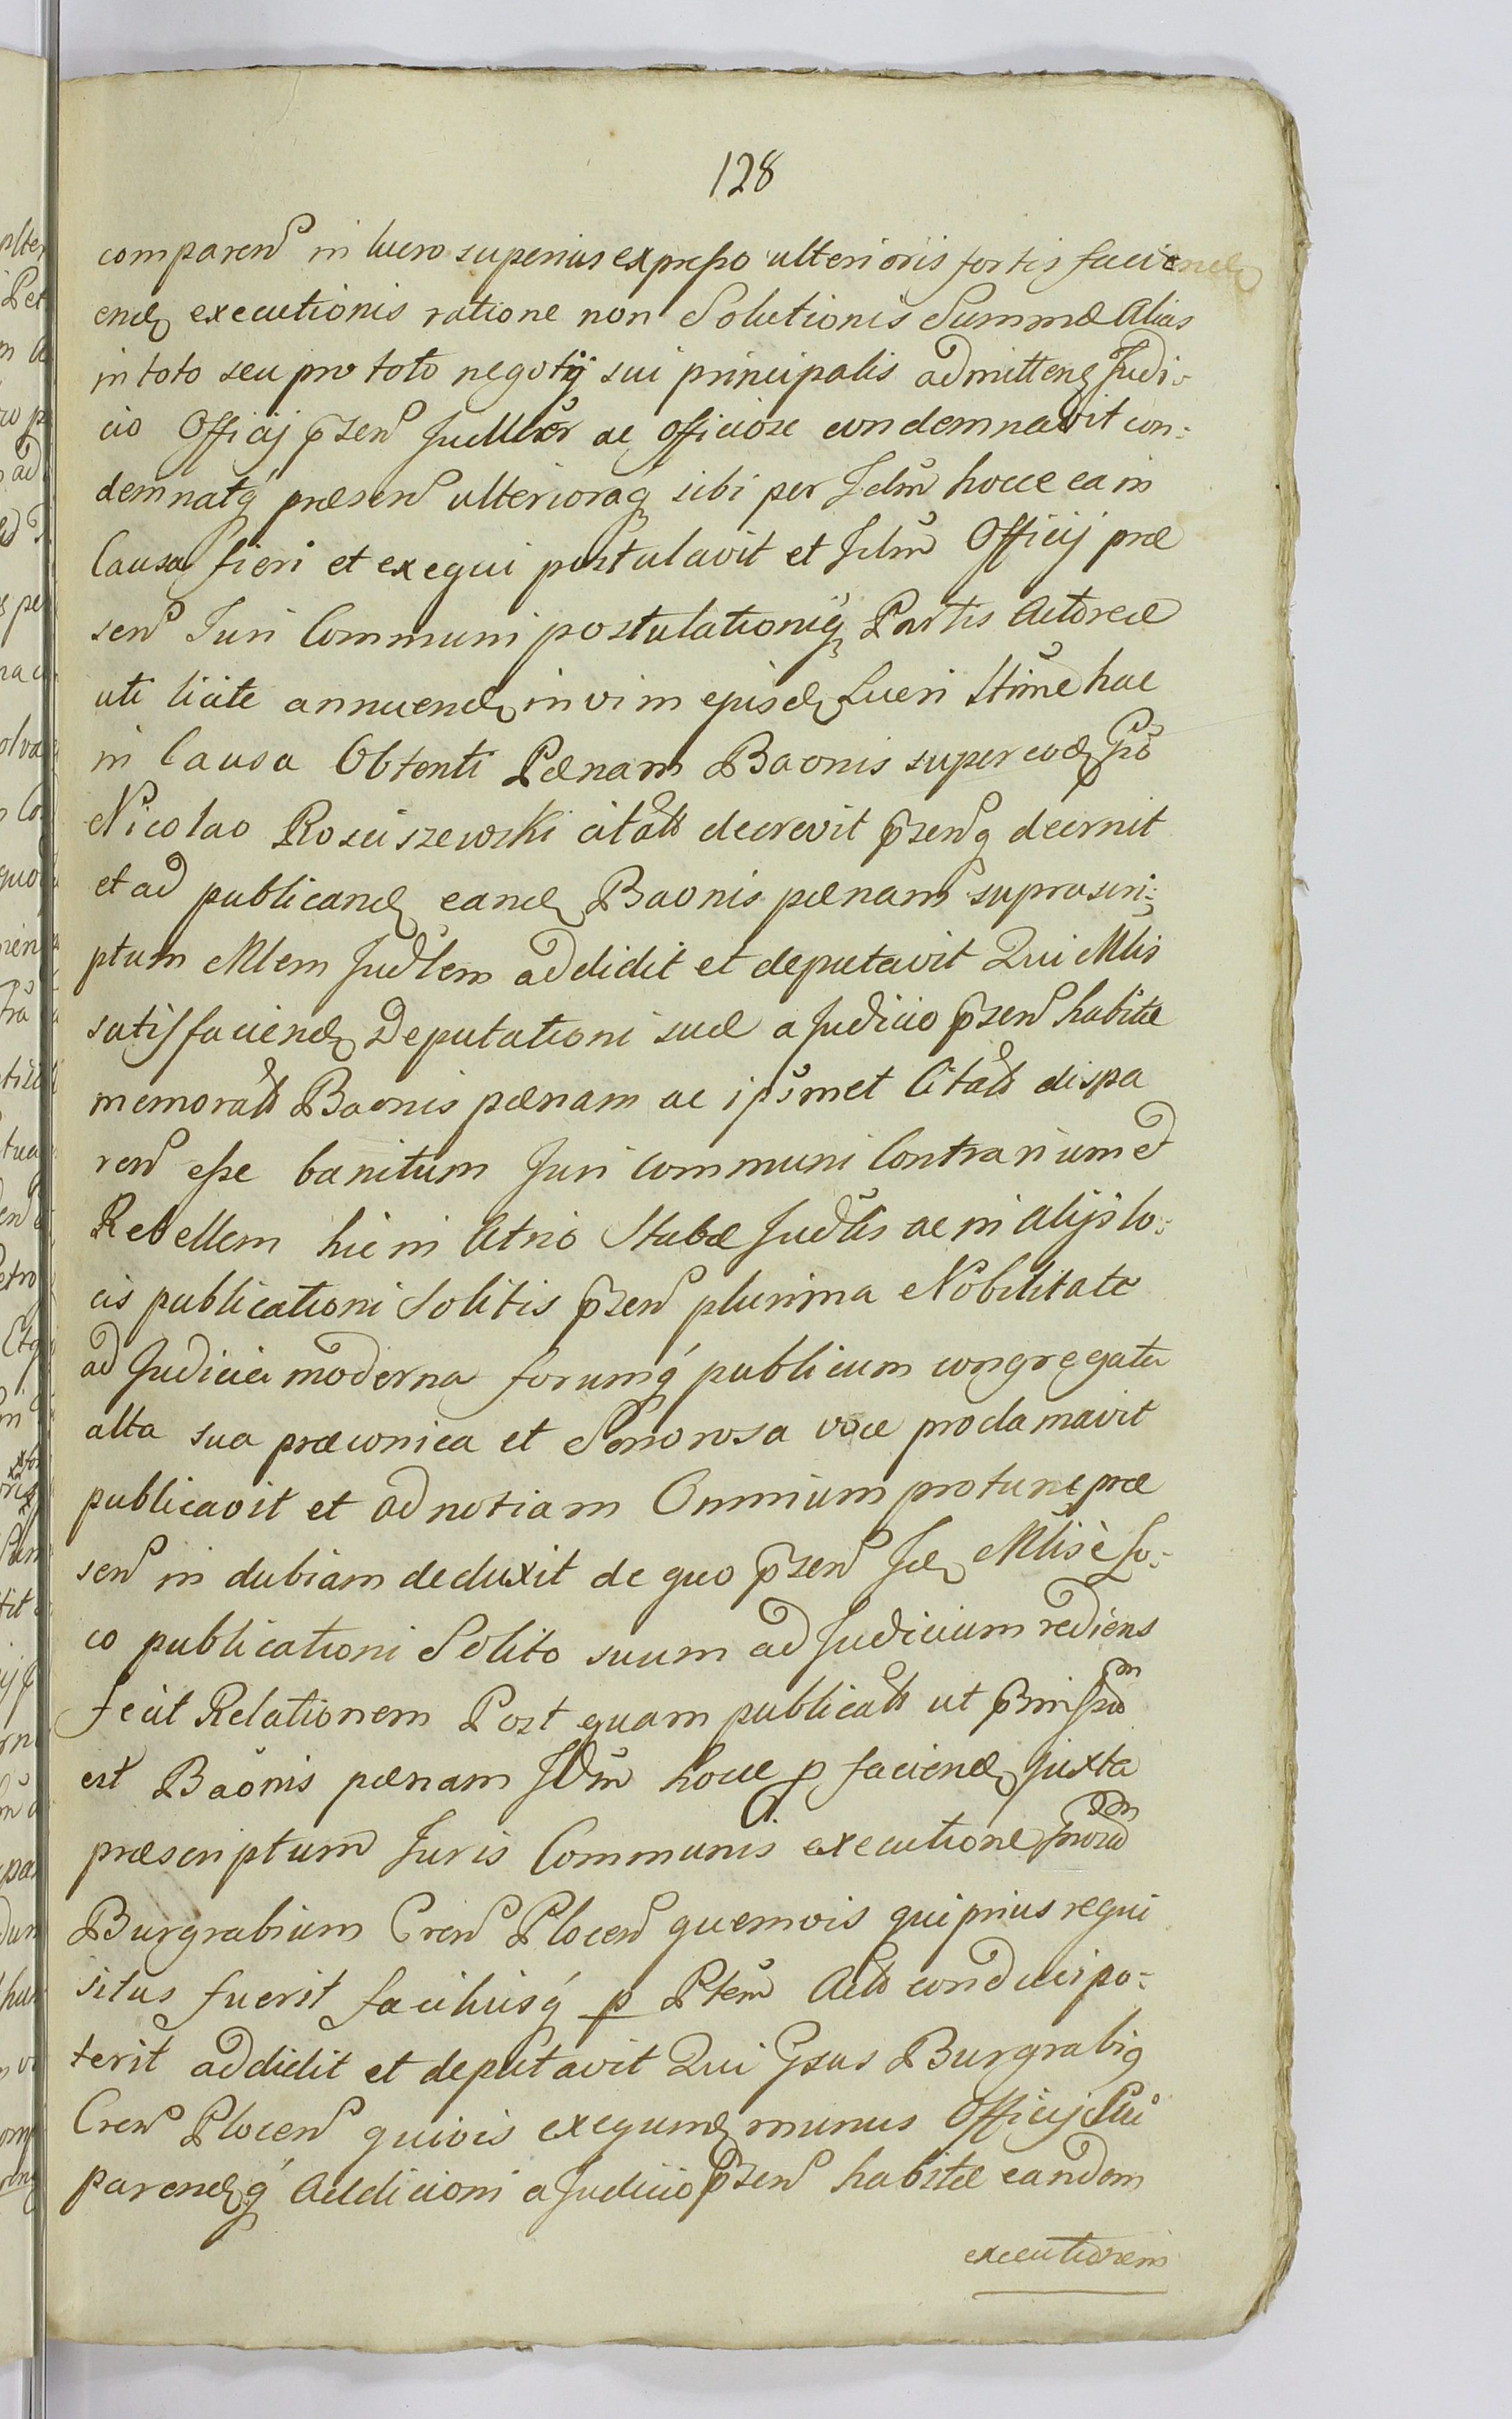 128
comparen in lucro superius expresso ulterioris fortis faciend
end executionis ratione non Solutionis Summæ Alias
in toto seu pro toto negotij sui principalis admitten Judi-
cio Officij pzen ac officiose condemnavit con:
demnatq præsen ulterioraq sibi per Jdm hocce ea in
Causa fieri et exequi postulavit et Jdm Officij præ
sen Juri Communi postulationiq Partis Actoreæ
uti licite annuend in vim ejusd Lucri hac
in Causa Obtenti Pænam Baonis super eod Gso
Nicolao Rosciszewski citato decrevit pzenq decernit
et ad publicand eand Baonis pænam suprascri:
ptum Mlem Judlem addidit et deputavit Qui Mlis
satisfaciend Deputationi suæ a Judicio pzen habitæ
memorato Baonis pænam ac ipsumet Citato dispa
ren esse banitum Juri communi Contrarium et
Rebellem hic in Atrio Stubæ Judlis ac in alijs lo:
cis publicationi Solitis pzen plurima Nobilitate
ad Judicia moderna forumq publicum congregata
alta sua præconica et Sonorosa voce proclamavit
publicavit et ad notiam Omnium protunc præ
sen in dubiam deduxit de quo pzen Jd Mlis è Lo:
co publicationi Solito suum ad Judicium rediens
fecit Relationem Post quam publicato ut pmissm
est Baonis pænam Jdm hocce p faciend juxta
præscriptum Juris Communis executione
Burgrabium Cren Plocen quemvis qui prius requi
situs fuerit faciliusq p Ptem Acto conduci po:
terit addidit et deputavit Qui Gsus Burgrabiq
Cren Plocen quivis exequend munus Officij Sui
parendq Addicioni a Judicio pzen habitæ eandem
executionem